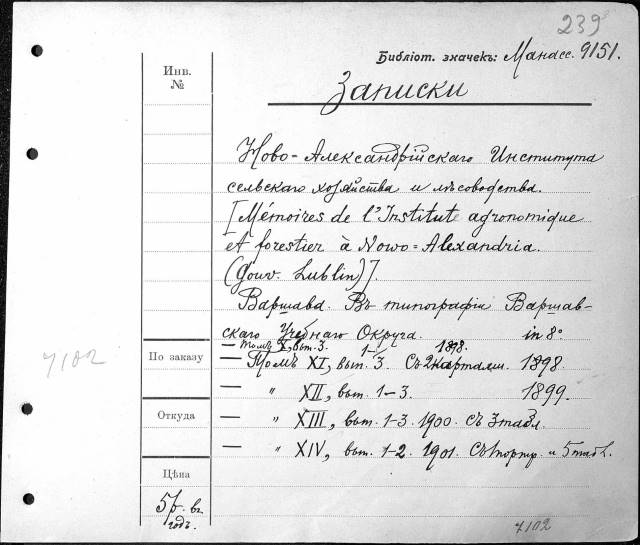 239
Библіот. значекъ: Манасс. 9151.
Инв. №
Записки
Ново-Александрійскаго Института
сельскаго хозяйства и лѣсоводства.
[Mémoires de l'Institute agronomique
et forestier à Nowo=Alexandria.
(Gouv. Lublin)].
Варшава. Въ типографіи Варшав-
скаго Учебнаго Округа. in 8º.
— Томъ X, вып. 3. 1898.
По заказу
7102
— Томъ XI, вып. 1-3. Съ 2 картами. 1898.
— " XII, вып. 1-3. 1899.
Откуда
— " XIII, вып. 1-3. 1900. съ 3 табл.
— " XIV, вып. 1-2. 1901. Съ портр. и 5 табл.
Цѣна
5 р. въ
годъ.
7102